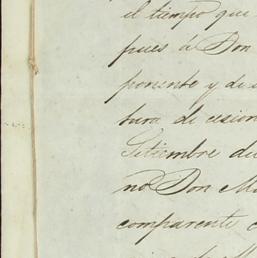 el tiempo que
pues á Don
ponente y de
tura de cesion
Setiembre de
no Don M
comparente